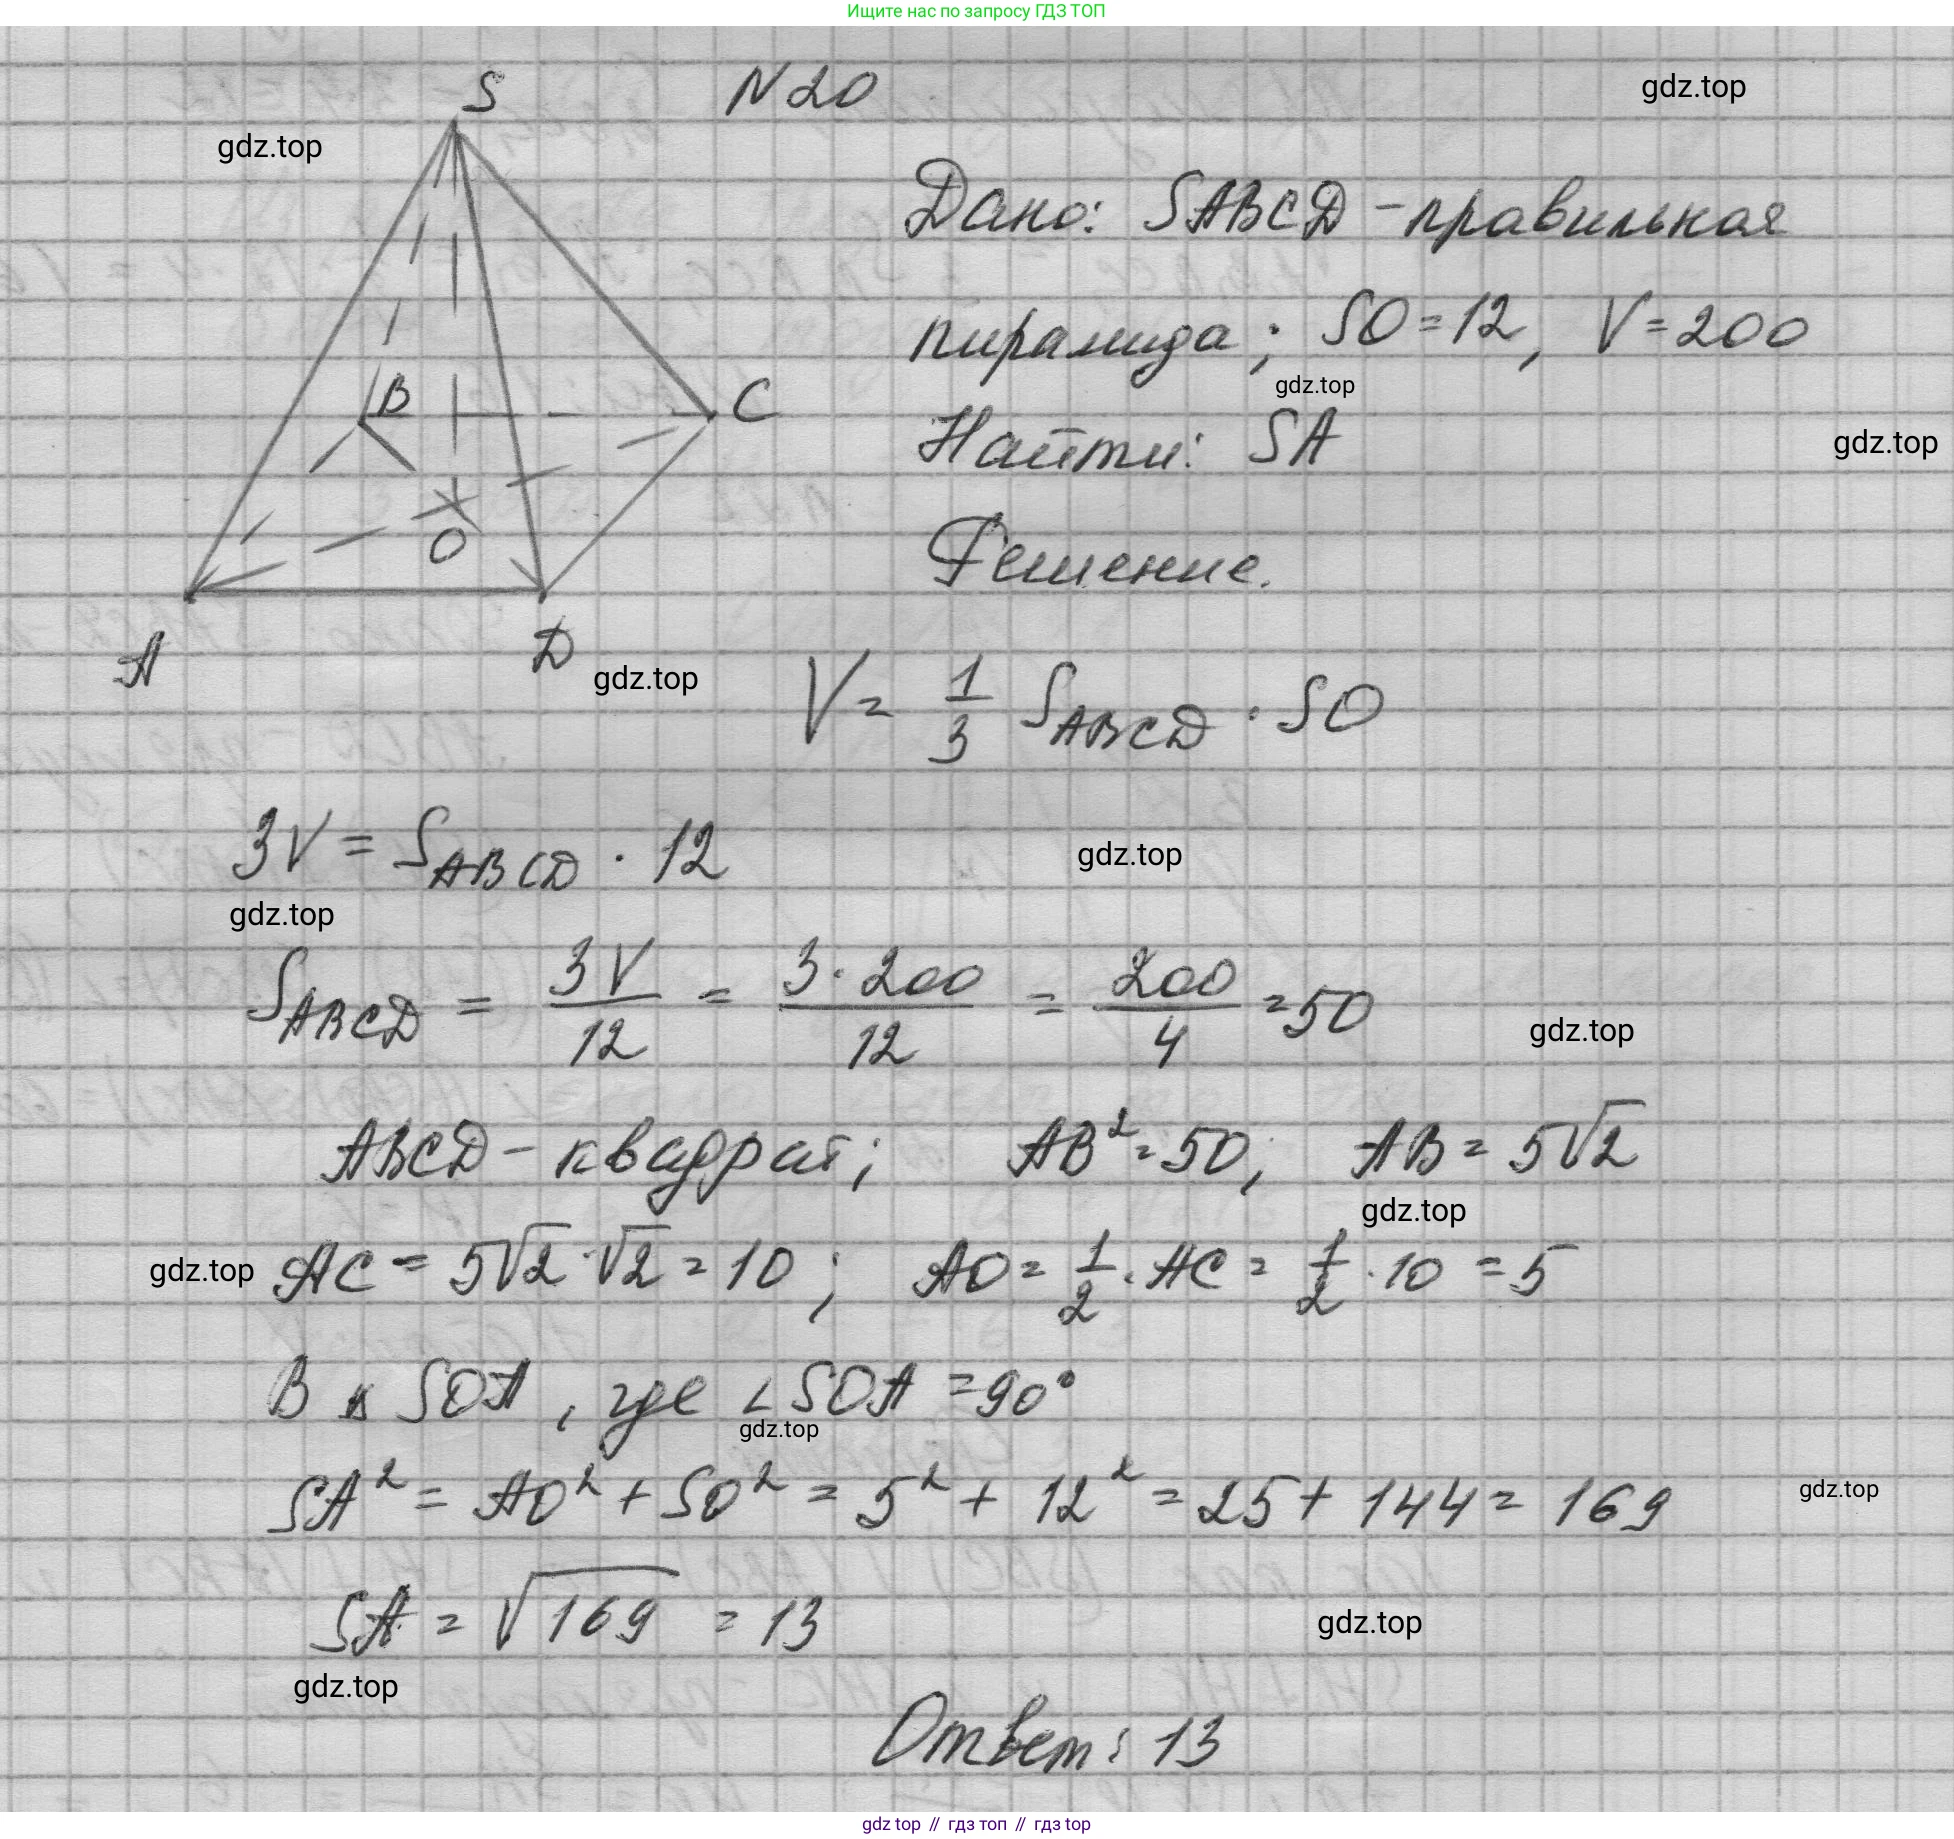 Ищите нас по запросу ГДЗ ТОП
S
N20
gdz.top
gdz.top
Дано: SABCD - правильная
пирамида; SO = 12, V = 200
gdz.top
B
C
Найти: SA
gdz.top
O
Решение.
A
D
gdz.top
V = 1/3 S_ABCD · SO
3V = S_ABCD · 12
gdz.top
gdz.top
S_ABCD = 3V/12 = 3·200/12 = 200/4 = 50
gdz.top
ABCD - квадрат; AB² = 50; AB = 5√2
gdz.top
gdz.top
AC = 5√2·√2 = 10; AO = 1/2·AC = 1/2·10 = 5
В △ SOA, где ∠SOA = 90°
gdz.top
SA² = AO² + SO² = 5² + 12² = 25 + 144 = 169
gdz.top
SA = √169 = 13
gdz.top
gdz.top
Ответ: 13
gdz top // гдз топ // гдз top